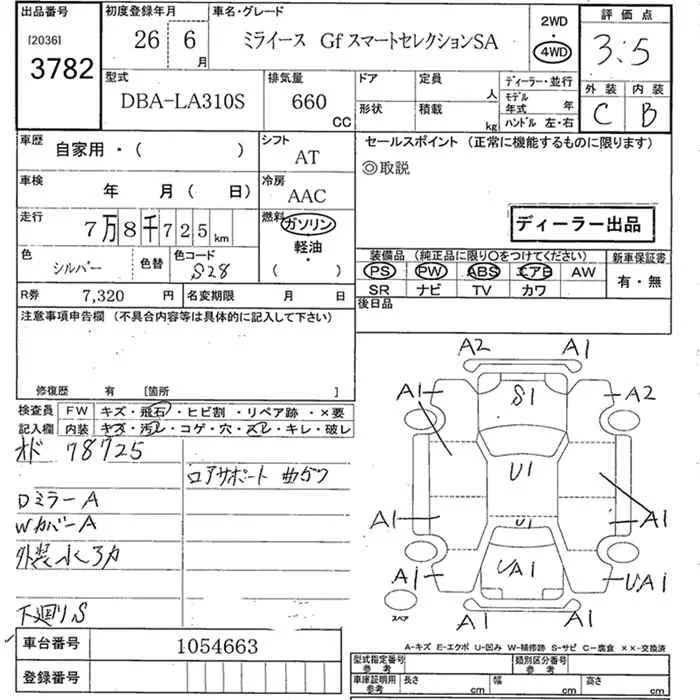 出品番号 初度登録年月 車名・グレード 2WD 評価点
[2036] 26 6月 ミライース Gf スマートセレクションSA 4WD 3.5
3782 型式 排気量 ドア 定員 人 ディーラー・並行 外装 内装
DBA-LA310S 660 CC 形状 積載 kg モデル年式 年 C B
ハンドル 左・右
車歴 自家用・( ) シフト AT セールスポイント (正常に機能するものに限ります)
◎取説
車検 年 月( 日) 冷房 AAC
走行 7万8千725km 燃料 ガソリン ディーラー出品
軽油
・
( )
色 シルバー 色替 色コード S28 装備品 (純正品に限り○をつけてください) 新車保証書
PS PW ABS エアB AW 有・無
R券 7,320 円 名変期限 月 日 SR ナビ TV カワ
注意事項申告欄 (不具合内容等は具体的に記入して下さい) 後日品
修復歴 有 [箇所 ]
検査員 FW キズ・飛石・ヒビ割・リペア跡・×要
記入欄 内装 キズ・汚レ・コゲ・穴・スレ・キレ・破レ
オド 78725
ロアサポート 曲ゲワ
Dミラー A
Wカバー A
下廻リS
A2 A1
A1 S1 A2
U1
A1 U1 A1
A1 UA1 UA1
スペア A1 A1
A-キズ E-エクボ U-凹み W-補修跡 S-サビ C-腐食 ××-交換済
車台番号 1054663 型式指定番号 参考 類別区分番号 参考
登録番号 車庫証明用 参考 長さ cm 幅 cm 高さ cm